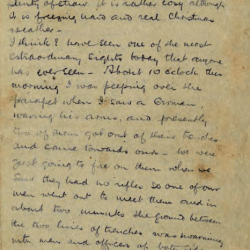 plenty of straw. It is rather cosy although
it is freezing hard and real Christmas
weather.
I think I have seen one of the most
extraordinary sights today that anyone
has ever seen. About 10 oclock this
morning I was peeping over the
parapet when I saw a German
waving his arms, and presently
two of them got out of their trenches
and came towards ours. We were
just going to fire on them when we
saw they had no rifles so one of our
men went out to meet them and in
about two minutes the ground between
the two lines of trenches was swarming
with men and officers of both sides